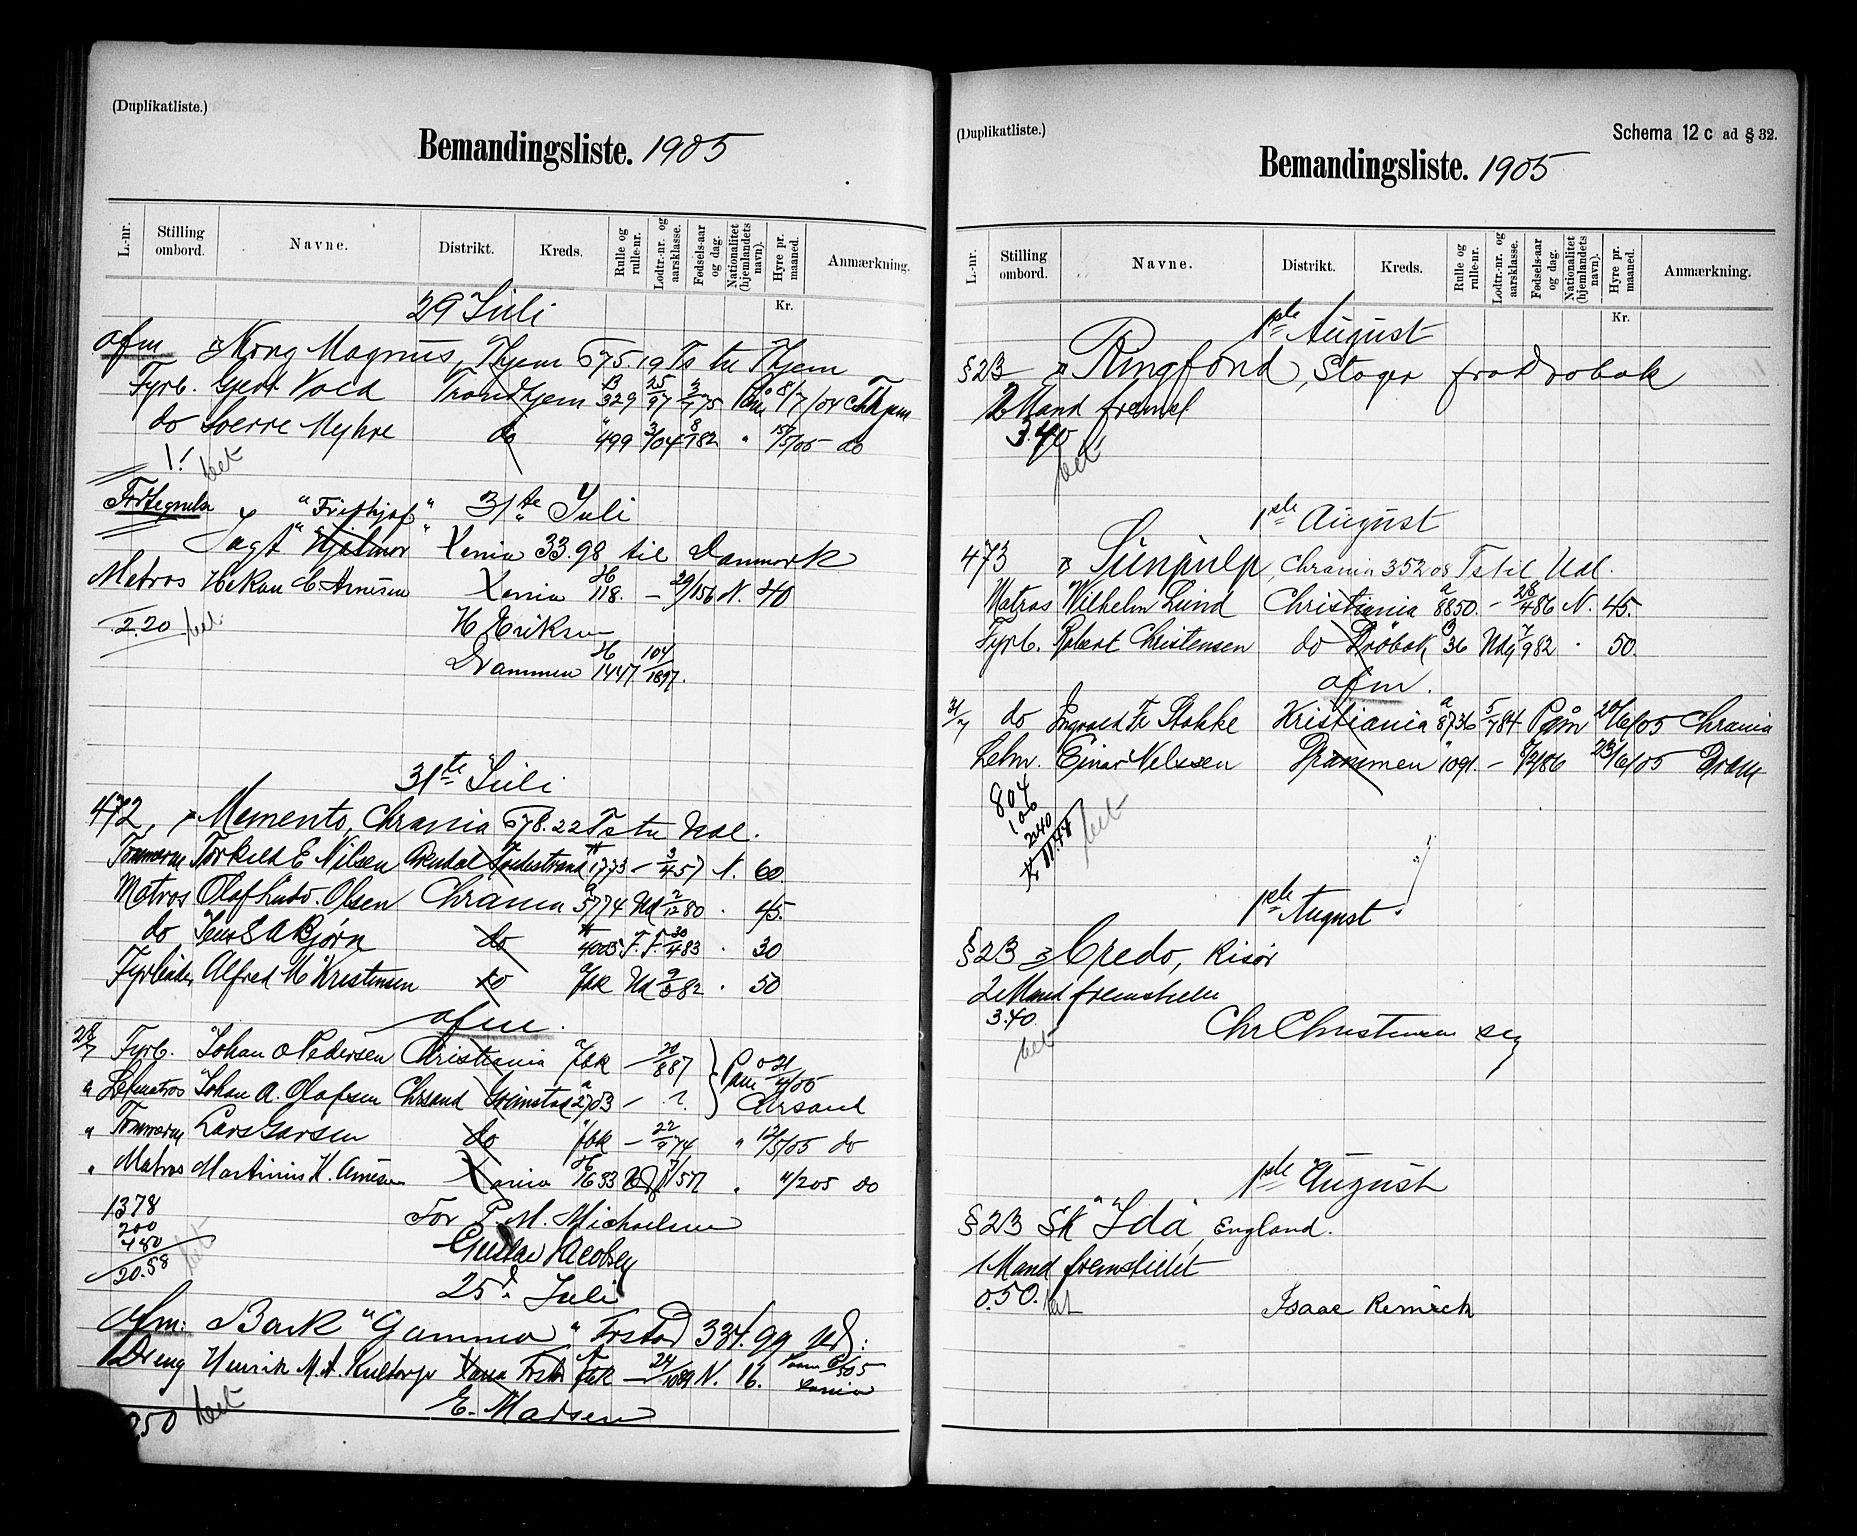 (Duplikatliste.)
Bemandingsliste. 1905
L.-nr. Stilling ombord. Navne. Distrikt. Kreds. Rulle og rulle-nr. Lodtr.-nr. og aarsklasse. Fødsels-aar og dag. Nationalitet (hjemlandets navn). Hyre pr. maaned. Anmærkning.
Kr.
29 Juli
afm Kong Magnus, Thjem 675.19 Ts til Thjem
Fyrb. Gjert Vold Trondhjem 329 25/97 75
do Sverre Myhre do 499 3/04 82 " 15/5/05 do
1! bet
"Fridhjof" 31te Juli
Jagt "Hjelmar" Xania 33.98 til Danmark
Matros Håkan C. Arnesen Xania 118. – 29/1 56 N. 40
2.20 bet.
H Eriksen
Drammen 1447 104/1897.
31te Juli
472, Memento, Chrania 678.22 Ts til Udl.
Tømmerm Torkild E Nilsen Arendal 1773 – 3/4 57 N. 60.
Matros Olaf Ludv. Olsen Chrania 5774 Ud 2/12 80 . 45.
do Jens S A Bjørn do 4005 F.F. 30/4 83 . 30
Fyrbøder Alfred M Kristensen do fbk Ud 82 . 50
afm.
28/7 Fyrb. Johan O Pedersen Christiania fbk – 20/8 87
" Letmatros Johan A. Olafsen Chrsand Grimstad 2703 – ?. Chrsand
" Tømmerm Lars Larsen do fbk – 22/9 74 " 12/5/05 do
" Matros Martinius H. Arnesen Xania 1633 " 4/2 05 do
1378
200
480
20.58 bet
For P. M. Michaelsen
Gustav Jacobsen
25d. Juli
Afm: Bark "Gamma" Frstad 334.99
Dreng Henrik M. A. Xania Frstd fbk – 24/10 89 N. 16.
250 bet
E. Madsen
(Duplikatliste.)
Schema 12 c ad § 32.
Bemandingsliste. 1905
L.-nr. Stilling ombord. Navne. Distrikt. Kreds. Rulle og rulle-nr. Lodtr.-nr. og aarsklasse. Fødsels-aar og dag. Nationalitet (hjemlandets navn). Hyre pr. maaned. Anmærkning.
Kr.
1ste August
§ 23 Ringfond, fra Drøbak
2 Mand fremst
3.40
bet
1ste August
473 Sunpulp, Chrania 352 Ts til Udl.
Matros Wilhelm Lund Christiania 8850. – 28/4 86 N. 45.
Fyrb. Robert Christensen do Drøbak 36 Udg 7/9 82 . 50.
afm.
31/7 do Ingvald Fr Stokke Kristiania 8736 5/7 84 Påm 20/6/05 Chrania
Letm. Einar Nelssen Drammen 1091. – 86 23/6/05 Dram
804
100
240
Kr 11.44 bet
1ste August.
§ 23 Credo, Risør
2 Mand fremstillet
3.40.
bet
Chr Christensen
1ste August
§ 23 Sk "Ida", England.
1 Mand fremstillet
0.50. bet
Isaac Remick